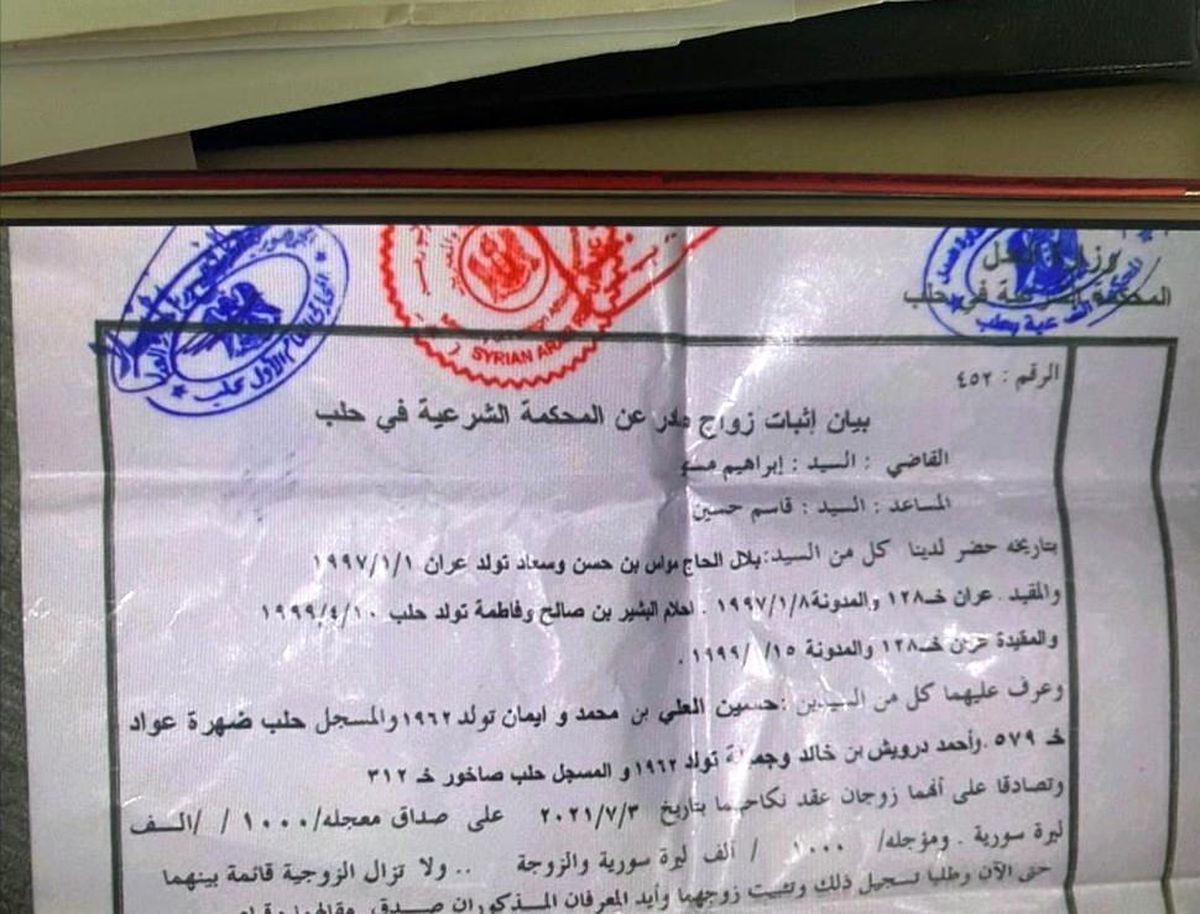 وزارة العدل
المحكمة الشرعية في حلب
SYRIAN ARAB
الرقم : ٤٥٢
بيان إثبات زواج صادر عن المحكمة الشرعية في حلب
القاضي : السيد : إبراهيم
المساعد : السيد : قاسم حسين
بتاريخه حضر لدينا كل من السيد: بلال الحاج مواس بن حسن وسعاد تولد عران ١٩٩٧/١/١
والمقيد . عران خــ١٢٨ والمدونة ١٩٩٧/١/٨ . احلام البشير بن صالح وفاطمة تولد حلب ١٩٩٩/٤/١٠
والمقيدة عران خــ١٢٨ والمدونة ١٥/ /١٩٩٩ .
وعرف عليهما كل من السيدين : حسين العلي بن محمد و ايمان تولد ١٩٦٢ والمسجل حلب ضهرة عواد
خـ ٥٧٩ . وأحمد درويش بن خالد وجميلة تولد ١٩٦٢ و المسجل حلب صاخور خـ ٣١٢
وتصادقا على أنهما زوجان عقد نكاحهما بتاريخ ٢٠٢١/٧/٣ على صداق معجله/١٠٠٠ / /الــف
ليرة سورية . ومؤجله/ ١٠٠٠ / ألف ليرة سورية والزوجة .. ولا تزال الزوجية قائمة بينهما
حتى الآن وطلبا تسجيل ذلك وتثبيت زوجهما وأيد المعرفان المــذكوران صــدق